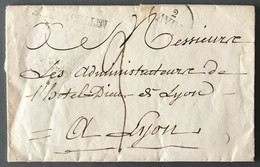 A Messieurs
Les Administrateurs de
l'hotel Dieu de Lyon
A Lyon